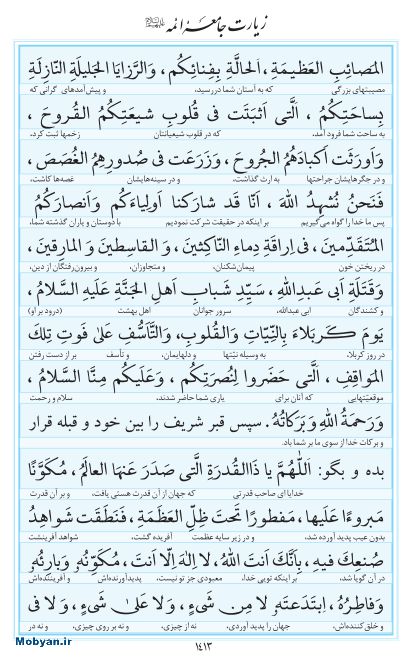 زیارت جامعهٔ ائمه علیهم‌السلام
المَصائِبِ العَظيمَةِ ، اَلحالَّةِ بِفِنائِكُم ، وَالرَّزايَا الجَليلَةِ النّازِلَةِ
مصیبتهای بزرگی که به آستان شما دررسید، و پیش‌آمدهای گرانی که
بِساحَتِكُم ، اَلَّتى اَثبَتَت فى قُلوبِ شيعَتِكُمُ القُروحَ ،
به ساحت شما فرود آمد، که در قلوب شیعیانتان زخمها ثبت کرد،
وَاَورَثَت اَكبادَهُمُ الجُروحَ ، وَزَرَعَت فى صُدورِهِمُ الغُصَصَ ،
و در جگرهایشان جراحتها به ارث گذاشت، و در سینه‌هایشان غصه‌ها کاشت،
فَنَحنُ نُشهِدُ اللهَ ، اَنّا قَد شارَكنا اَولِياءَكُم وَاَنصارَكُمُ
پس ما خدا را گواه می‌گیریم بر اینکه در حقیقت شرکت نمودیم با دوستان و یاران گذشته شما،
المُتَقَدِّمينَ ، فى اِراقَةِ دِماءِ النّاكِثينَ ، وَ القاسِطينَ وَ المارِقينَ ،
در ریختن خون پیمان‌شکنان، و متجاوزان، و بیرون‌رفتگان از دین،
وَ قَتَلَةِ اَبى عَبدِاللهِ ، سَيِّدِ شَبابِ اَهلِ الجَنَّةِ عَلَيهِ السَّلامُ ،
و کشندگان ابی عبدالله، سرور جوانان اهل بهشت (درود بر او)
يَومَ كَربَلاءَ بِالنِّيّاتِ وَالقُلوبِ، وَالتَّاَسُّفِ عَلىٰ فَوتِ تِلكَ
در روز کربلا، به وسیله نیّتها و دلهایمان، و تأسف بر از دست رفتن
المَواقِفِ ، الَّتى حَضَروا لِنُصرَتِكُم ، وَعَلَيكُم مِنَّا السَّلامُ ،
موقعیّتهایی که آنان برای یاری شما حاضر شدند، سلام و رحمت
وَرَحمَةُ اللهِ وَبَرَكاتُهُ . سپس قبر شریف را بین خود و قبله قرار
و برکات خدا از سوی ما بر شما باد.
بده و بگو: اَللّٰهُمَّ يا ذَاالقُدرَةِ الَّتى صَدَرَ عَنهَا العالَمُ، مُكَوَّنًا
خدایا ای صاحب قدرتی که جهان از آن قدرت هستی یافت، و بر آن قدرت
مَبروءًا عَلَيها، مَفطورًا تَحتَ ظِلِّ العَظَمَةِ ، فَنَطَقَت شَواهِدُ
بدون عیب پدید آورده شد، و در زیر سایه عظمت آفریده گشت، شواهد آفرینشت
صُنعِكَ فيهِ ، بِاَنَّكَ اَنتَ اللهُ، لا اِلهَ اِلّا اَنتَ ، مُكَوِّنُهُ وَبارِئُهُ
در آن گویا شد، بر اینکه تویی خدا، معبودی جز تو نیست، پدیدآورنده‌اش و آفریننده‌اش
وَفاطِرُهُ ، اِبتَدَعتَهُ لا مِن شَىءٍ ، وَ لا عَلىٰ شَىءٍ ، وَ لا فى
و خلق‌کننده‌اش، جهان را پدید آوردی، نه از چیزی، و نه بر روی چیزی، و نه در
Mobyan.ir
۱۴۱۳